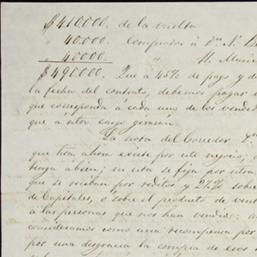 $410,000. de la vuelta
40,000. Comprados á Dn. N. Be
40000 " " M. Muri
$490000. Que á 45% de pago y d
la fecha del contrato, debemos pagar
que corresponda á cada uno de los vended
que á otro cargo girarán.
La nota del Corredor
que tra, ahora existe por este negocio;
tenga á bien; en esta se fija por otra
que se reciban por réditos y 2½% sobre
de Capitales, ó sobre el producto de vent
á las personas que nos han vendido;
consideramos como una recompensa por
por una desgracia la compra de esos